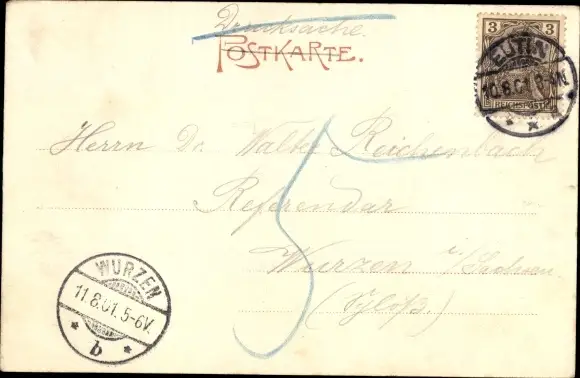 Drucksache.
POSTKARTE.
3 3
REICHSPOST
EUTIN
10.8.01.
Herrn Dr. Walter Reichenbach
Referendar
Wurzen i/Sachsen
(Schloß).
5
WURZEN
11.8.01.5-6V.
* b *